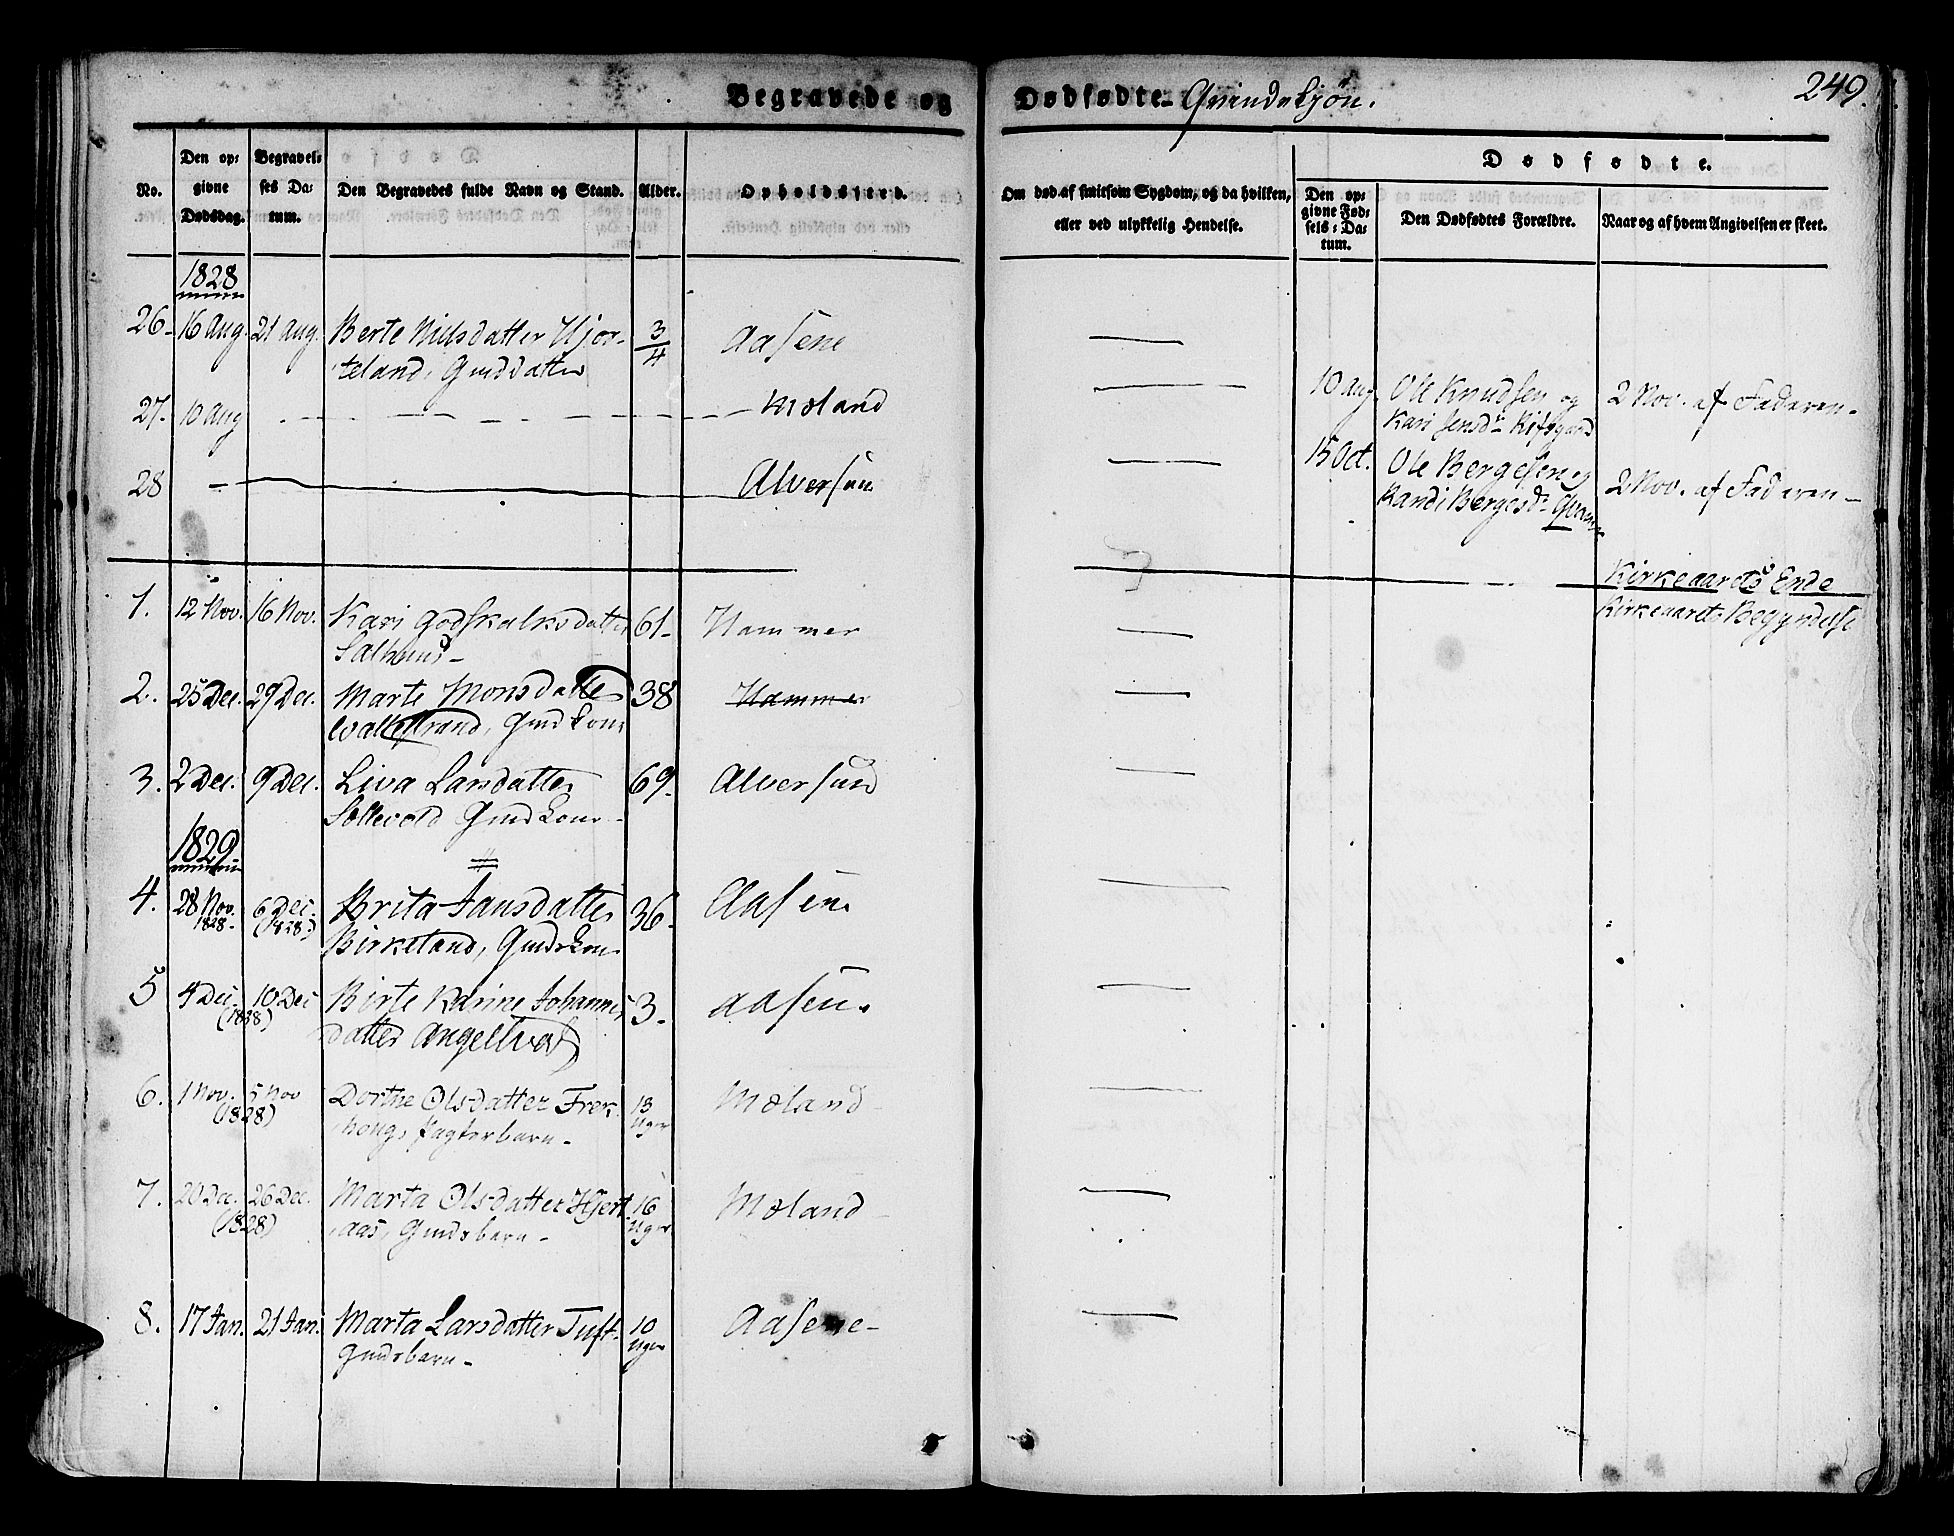 Begravede og Dødfødte Qvindekjøn. 249.
No. Den opgivne Dødsdag. Begravelses Datum. Den Begravedes fulde Navn og Stand. Alder. Opholdssted. Om død af smitsom Sygdom, og da hvilken, eller ved ulykkelig Hendelse. Dødfødte. Den opgivne Fødsels-Datum. Den Dødfødtes Forældre. Naar og af hvem Angivelsen er skeet.
1828
26- 16 Aug. 21 Aug. Berte Nielsdatter Hjor- 3/4 Aasene
teland, Gmdsdatter
27. 10 Aug Mæland 10 Aug Ole Knudsen og 2 Nov. af Faderen-
Kari Jensdr
28 Alversun 15 Oct. Ole Bergesen og 2 Nov. af Faderen-
Randi Bergesdr
Kirkeaarets Ende
Kirkeaarets Begyndelse
1. 12 Nov. 16 Nov. Kari Godskalksdatter 61- Hammer
Salhuus-
2. 25 Dec. 29 Dec. Marte Monsdatter 38 Hammer
Gmdkone
3. 2 Dec. 9 Dec. Liva Larsdatter 69. Alversund
Gmdkone-
1829
4. 28 Nov. 1828. 6 Dec. (1828) Brita Jansdatter 36. Aasene
Birkeland, Gmdskone
5 4 Dec. 10 Dec (1828) Birte Karine Johannes 3. Aasen.
datter Angeltvedt
6. 1 Nov. 5 Nov (1828) Dorthe Olsdatter Frek 13 Uger Mæland
houg, Pagterbarn-
7. 20 Dec. 26 Dec. (1828) Marta Olsdatter Hjert 16 Uger Mæland
aas, Gmdsbarn-
8. 17 Jan. 21 Jan. Marta Larsdatter Tuft- 10 Uger Aasene-
Gmdsbarn-